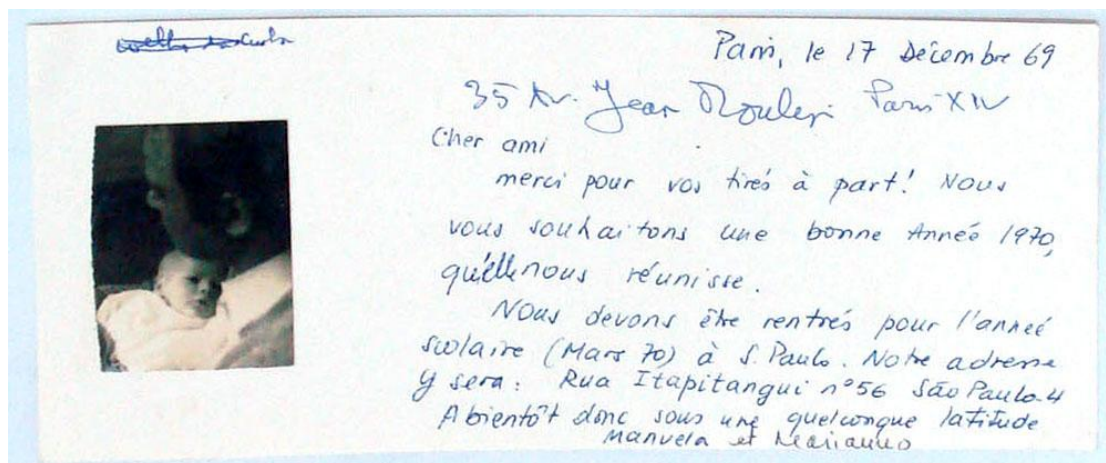 Paris, le 17 Décembre 69
35 Av. Jean Moulin Paris XIV
Cher ami
merci pour vos tirés à part! Nous
vous souhaitons une bonne Année 1970,
qu'elle nous réunisse.
Nous devons être rentrés pour l'anneé
scolaire (Mars 70) à S. Paulo. Notre adresse
y sera: Rua Itapitangui nº 56 São Paulo-4
A bientôt donc sous une quelconque latitude
Manuela et Marianno